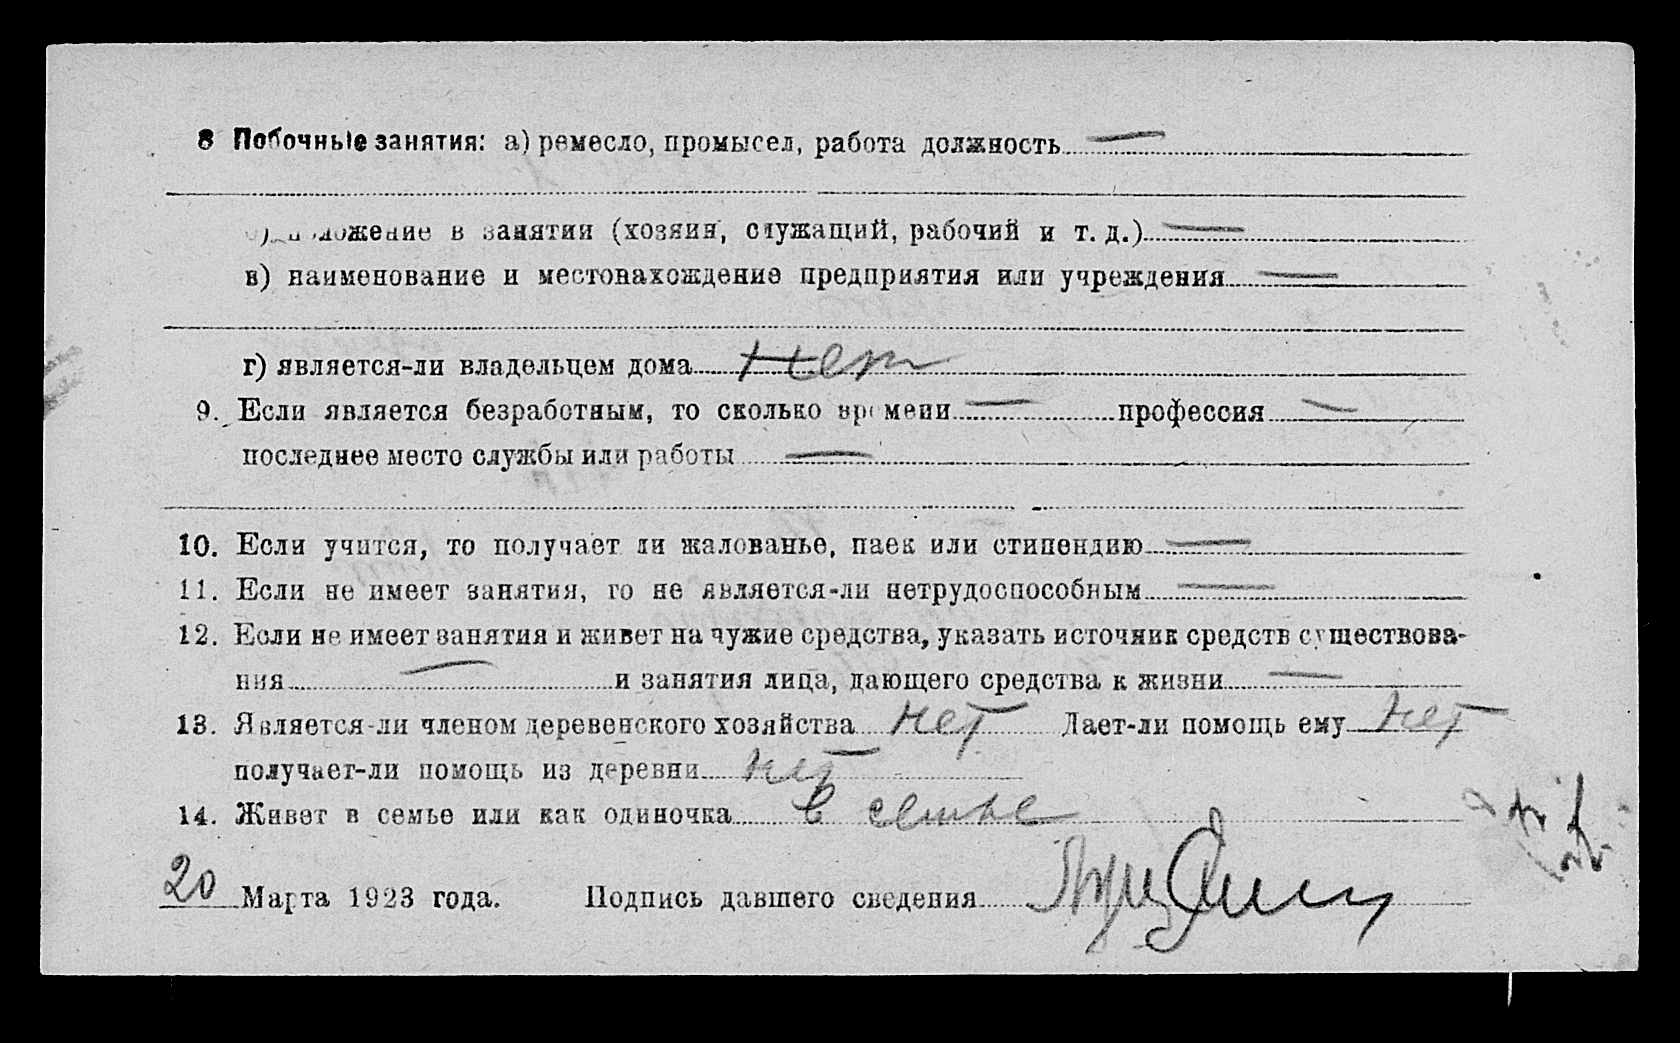 8 Побочные занятия: а) ремесло, промысел, работа должность —
б) положение в занятии (хозяин, служащий, рабочий и т. д.) —
в) наименование и местонахождение предприятия или учреждения —
г) является-ли владельцем дома нет
9. Если является безработным, то сколько времени — профессия —
последнее место службы или работы —
10. Если учится, то получает ли жалованье, паек или стипендию —
11. Если не имеет занятия, то не является-ли нетрудоспособным —
12. Если не имеет занятия и живет на чужие средства, указать источник средств существова-
ния — и занятия лица, дающего средства к жизни —
13. Является-ли членом деревенского хозяйства нет Дает-ли помощь ему нет
получает-ли помощь из деревни нет
14. Живет в семье или как одиночка в семье
20 Марта 1923 года. Подпись давшего сведения